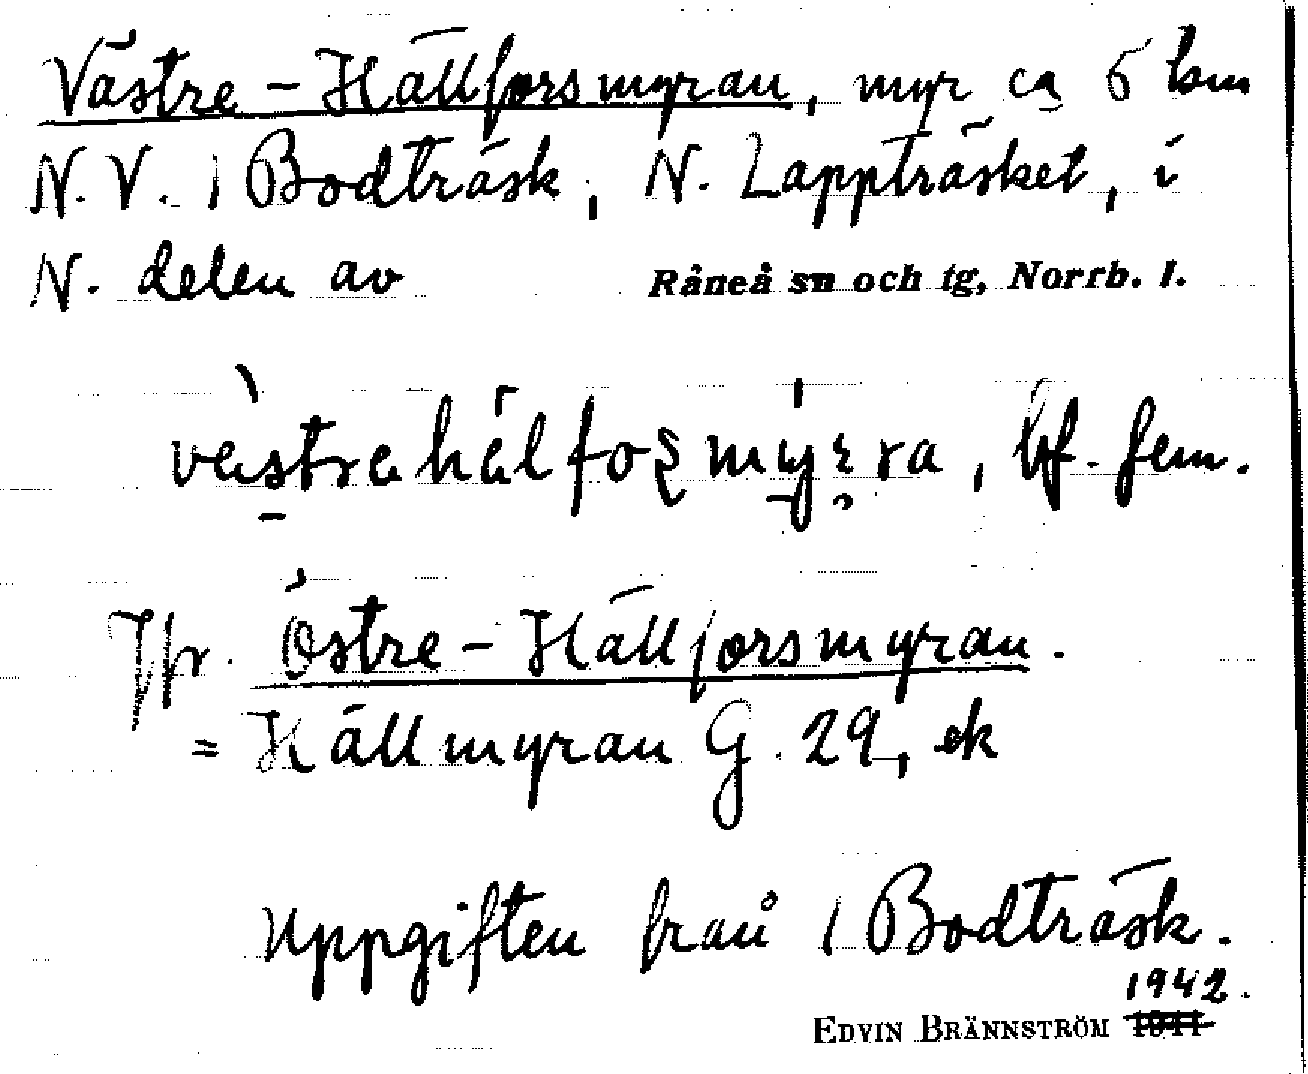 Västre-Hällforsmyran, myr ca 5 km
N.V. 1 Bodträsk, N. Lappträsket, i
N. delen av Råneå sn och tg, Norrb. l.
bf. fem.
Jfr. Östre-Hällforsmyran.
= Hällmyran G. 29, ek
Uppgiften från 1 Bodträsk.
1942.
EDVIN BRÄNNSTRÖM 1941